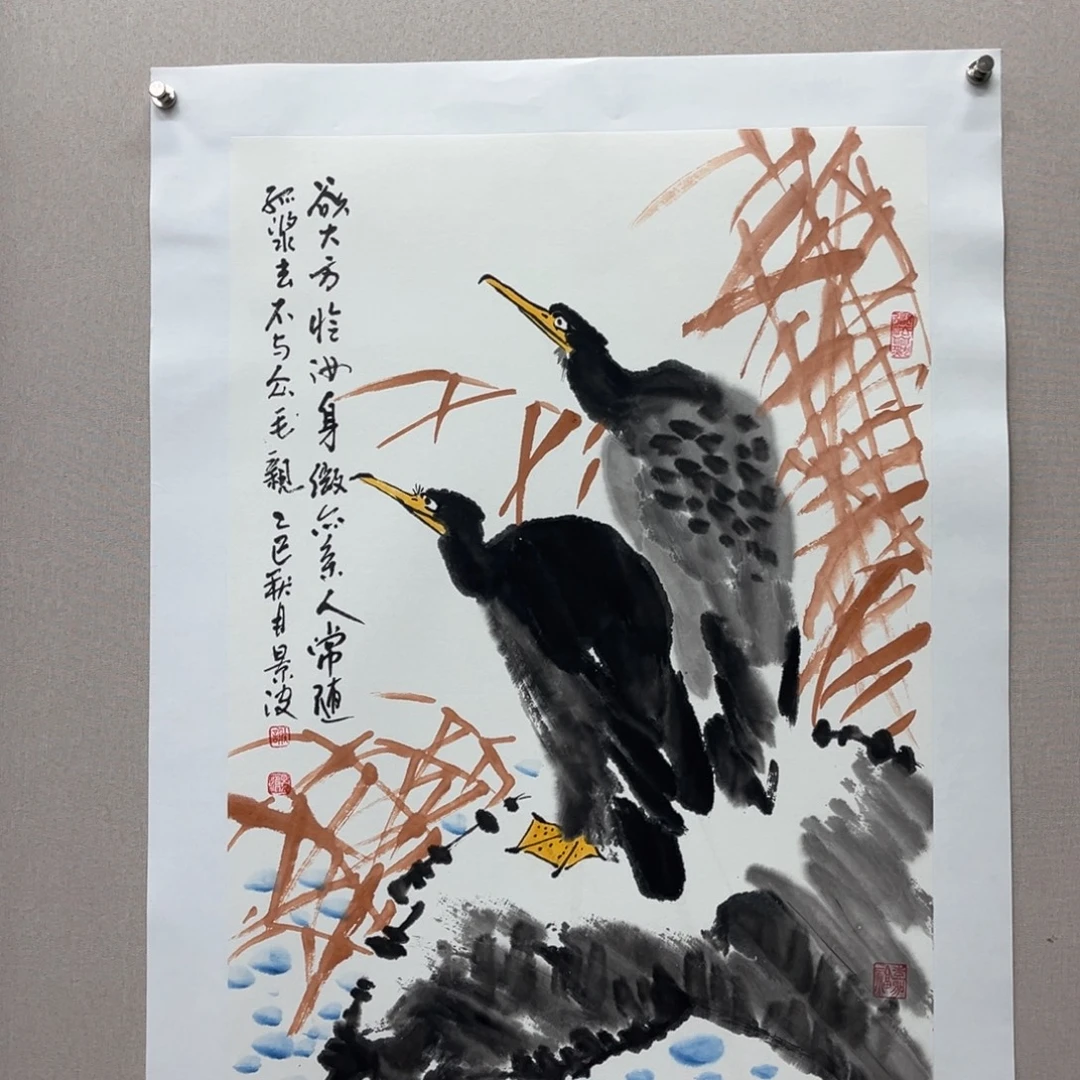 欲大方怜汝身微亦系人常随
孤桨去不与众毛亲乙巳秋月景波